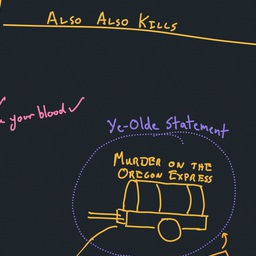 Also Also Kills
your blood
Ye-Olde Statement
Murder on the
Oregon Express